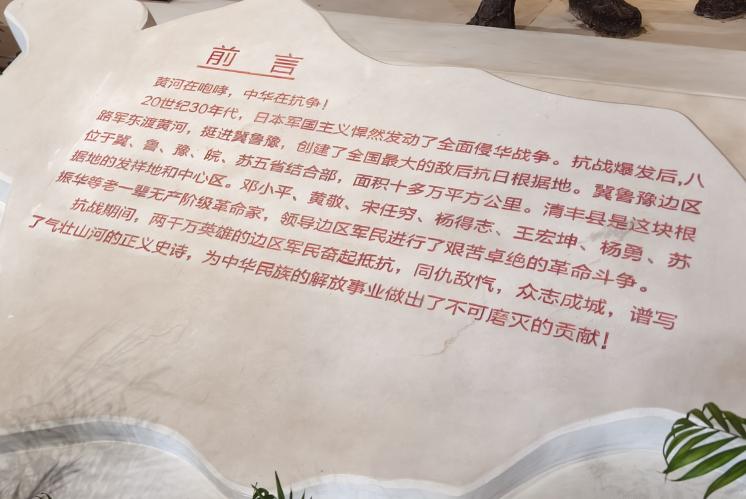 前 言
黄河在咆哮，中华在抗争！
20世纪30年代，日本军国主义悍然发动了全面侵华战争。抗战爆发后，八
路军东渡黄河，挺进冀鲁豫，创建了全国最大的敌后抗日根据地。冀鲁豫边区
位于冀、鲁、豫、皖、苏五省结合部，面积十多万平方公里。清丰县是这块根
据地的发祥地和中心区。邓小平、黄敬、宋任穷、杨得志、王宏坤、杨勇、苏
振华等老一辈无产阶级革命家，领导边区军民进行了艰苦卓绝的革命斗争。
抗战期间，两千万英雄的边区军民奋起抵抗，同仇敌忾，众志成城，谱写
了气壮山河的正义史诗，为中华民族的解放事业做出了不可磨灭的贡献！